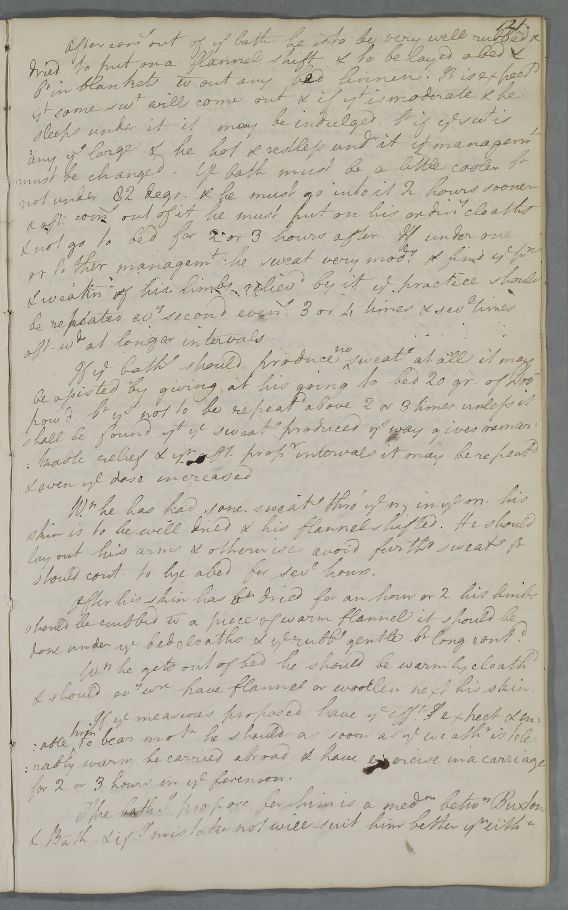 121.
After com.g out of y.e bath he is to be very well rubbed &
dried to put on a flannel shift & to be layed abed &
b.t in blankets w.t out any bed linnen. It is expect.d
y.t some sw.t will come out & if y.t is moderate & he
sleeps under it it may be indulged. B.t if y.e sw.t is
any y.g large & he hot & restless und.r it y.e managem.t
must be changed. Y.e bath must be a little cooler b.t
not under 82 degr. & he must go into it 2 hours sooner
& aft.r com.g out of it he must put on his ordin.y cloaths
& not go to bed for 2 or 3 hours after. If under one
or t'other managem.t he sweat very mod.y & find y.e p.n
& weakn.s of his limbs reliev'd by it y.e practice should
be repeated ev.y second even.g 3 or 4 times & sev.l times
aft.w.ds at longer intervals.
If y.e bath.g should produce no sweat.g at all it may
be assisted by giving at his going to bed 20 gr. of Dov.
powd. b.t y.s not to be repeat.d above 2 or 3 times unless it
shall be found y.t y.e sweat.g produced y.s way gives remar:
:kable relief & y.n aft.r prop.r intervals it may be repeat.d
& even y.e dose increased
W.n he has had some sweat.g thro' y.e n. in y.e m. his
skin is to be well dried & his flannel shifted. He should
lay out his arms & otherwise avoid furth.r sweat.g b.t
should cont. to lye abed for sev.l hours.
After his skin has b.n dried for an hour or 2 his limbs
should be rubbed w.t a piece of warm flannel it should be
done under y.e bedcloaths & y.e rubb.g gentle b.t long cont.d
W.n he gets out of bed he should be warmly cloath.d
& should ev.y w.re have flannel or woollen next his skin.
If y.e measures proposed have y.e eff.t I expect & en:
:able him to bear mot.n he should as soon as y.e weath.r is tole:
:rably warm be carried abroad & have exercise in a carriage
for 2 or 3 hours in y.e forenoon.
The bath I propose for him is a med.m betw.n Buxton
& Bath & if I mistake not will suit him better y.n eith.r